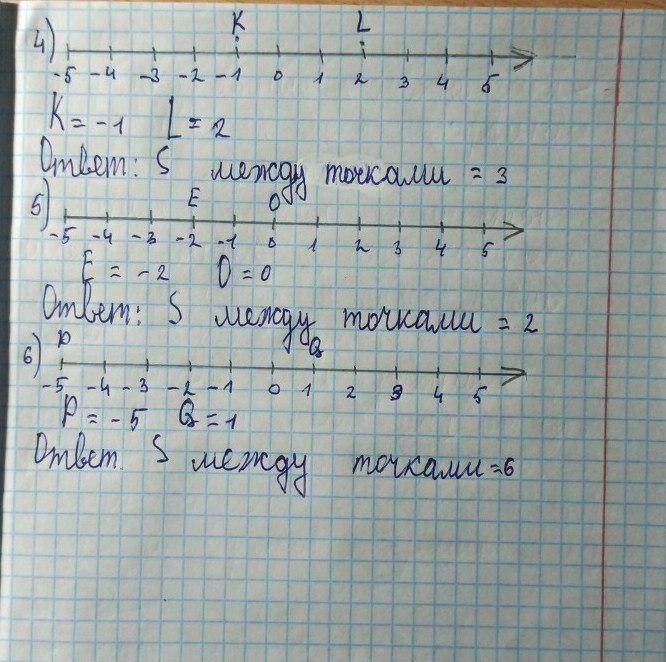 4) K L
-5 -4 -3 -2 -1 0 1 2 3 4 5
K = -1 L = 2
Ответ: S между точками = 3
5) E O
-5 -4 -3 -2 -1 0 1 2 3 4 5
E = -2 O = 0
Ответ: S между точками = 2
6) P Q
-5 -4 -3 -2 -1 0 1 2 3 4 5
P = -5 Q = 1
Ответ. S между точками = 6